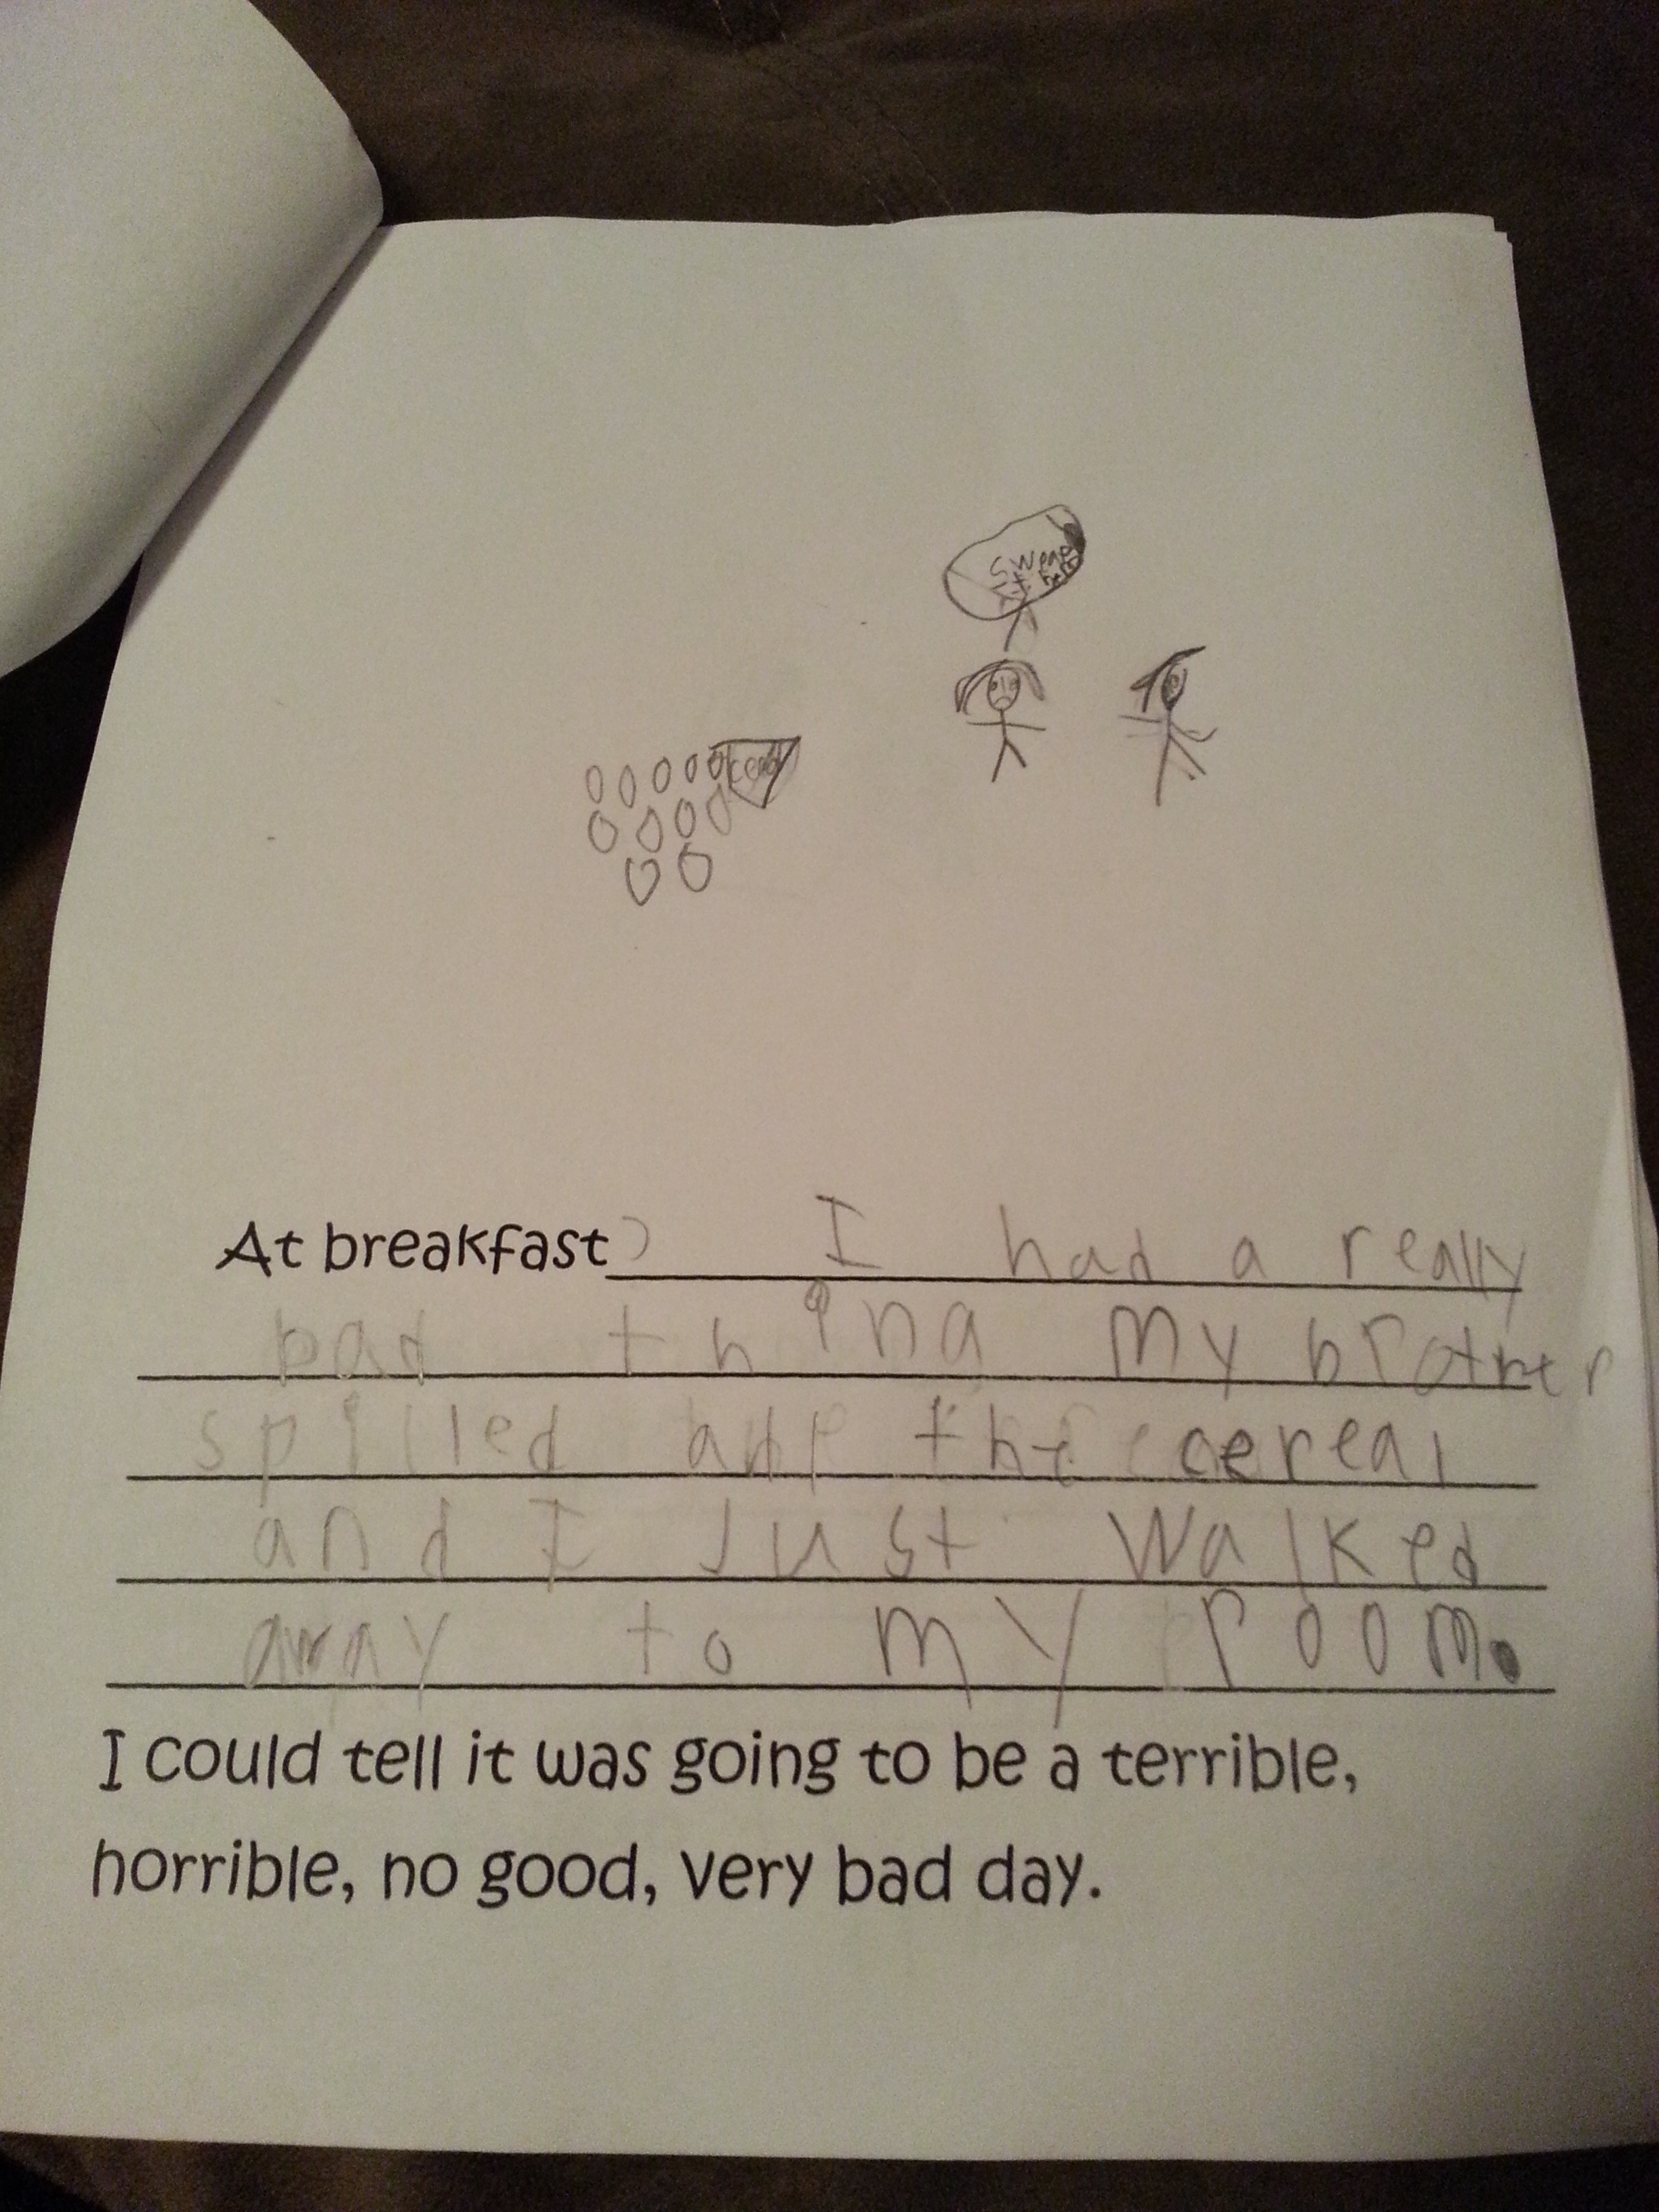 At breakfast, I had a really
bad thing my brother
spilled all the cereal
and I Just walked
away to my room.
I could tell it was going to be a terrible,
horrible, no good, very bad day.